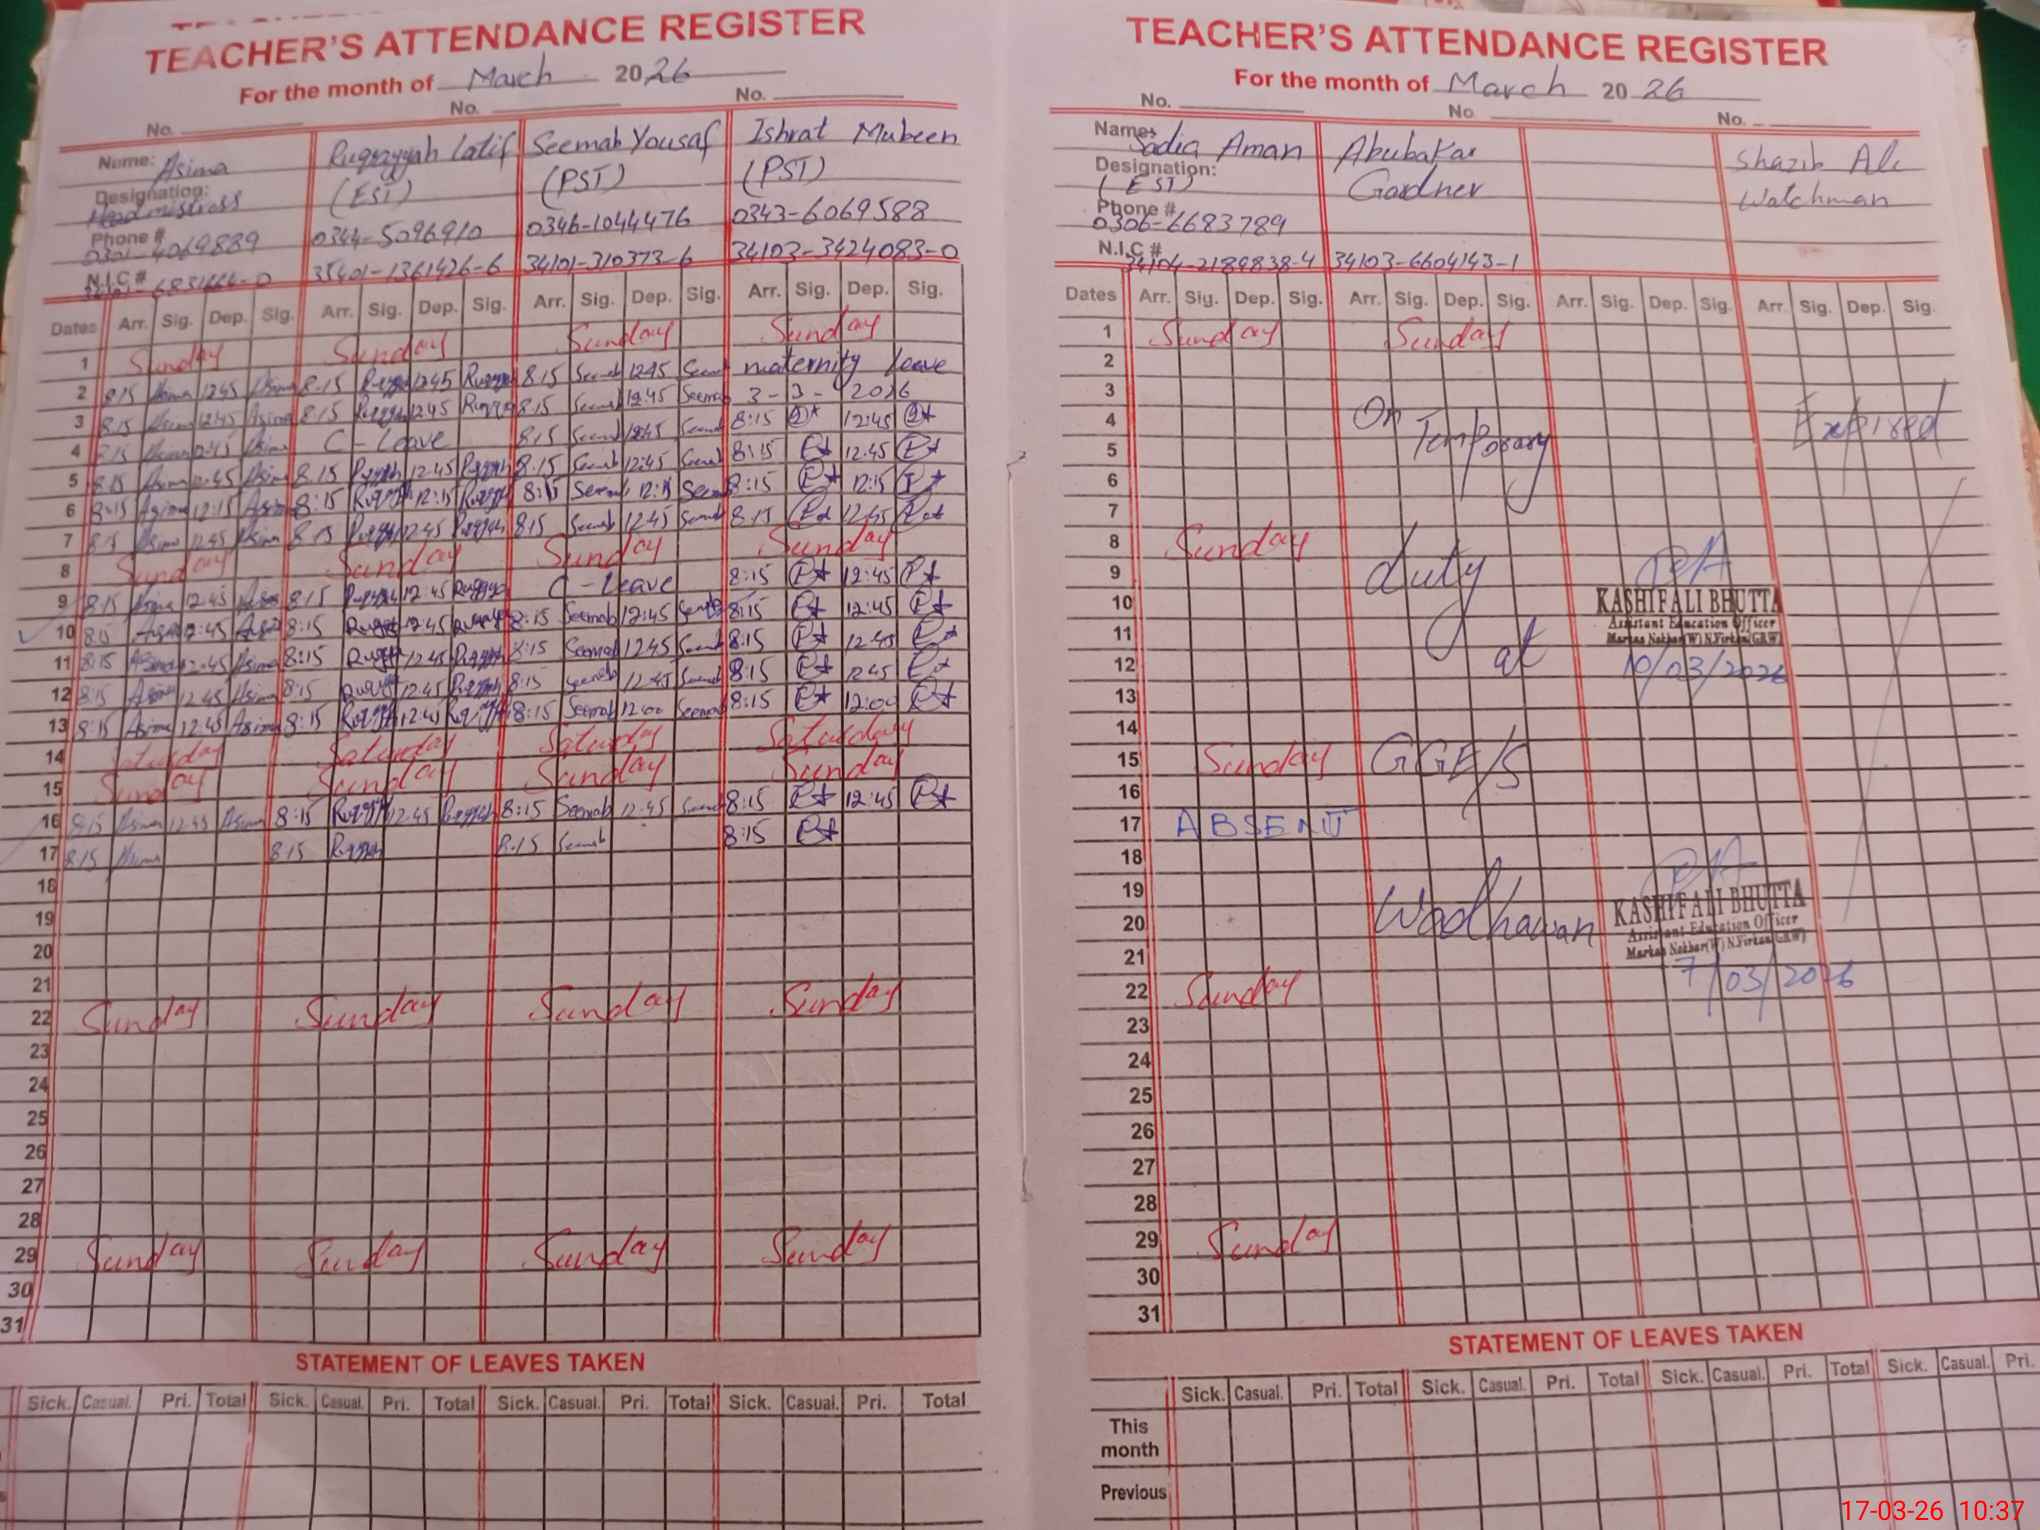 TEACHER'S ATTENDANCE REGISTER
For the month of March 2026
No. No. No.
Name: Asima Ruqayyah Latif Seemab Yousaf Ishrat Mubeen
Designation: Headmistress (EST) (PST) (PST)
Phone # 0344-5096910 0346-1044476 0343-6069588
N.I.C # 35401-1361426-6 34101-310373-6 34103-3424083-0
Dates Arr. Sig. Dep. Sig. Arr. Sig. Dep. Sig. Arr. Sig. Dep. Sig. Arr. Sig. Dep. Sig.
1 Sunday Sunday Sunday Sunday
2 8:15 Asima 12:45 Asima 8:15 12:45 8:15 Seemab 12:45 Seemab maternity leave
3 8:15 Asima 12:45 Asima 8:15 12:45 8:15 Seemab 12:45 Seemab 3-3-2026
4 8:15 Asima 12:45 Asima C-Leave 8:15 Seemab 12:45 Seemab 8:15 12:45
5 8:15 Asima 12:45 Asima 8:15 12:45 8:15 Seemab 12:45 Seemab 8:15 12:45
6 8:15 Asima 12:15 Asima 8:15 12:15 8:15 Seemab 12:15 Seemab 8:15 12:15
7 8:15 Asima 12:45 Asima 8:15 12:45 8:15 Seemab 12:45 Seemab 8:15 12:45
8 Sunday Sunday Sunday Sunday
9 8:15 Asima 12:45 Asima 8:15 12:45 C-Leave 8:15 12:45
10 8:15 Asima 12:45 Asima 8:15 12:45 8:15 Seemab 12:45 Seemab 8:15 12:45
11 8:15 Asima 12:45 Asima 8:15 12:45 8:15 Seemab 12:45 Seemab 8:15 12:45
12 8:15 Asima 12:45 Asima 8:15 12:45 8:15 Seemab 12:45 Seemab 8:15 12:45
13 8:15 Asima 12:45 Asima 8:15 12:45 8:15 Seemab 12:00 Seemab 8:15 12:00
14 Saturday Saturday Saturday Saturday
15 Sunday Sunday Sunday Sunday
16 8:15 Asima 12:45 Asima 8:15 12:45 8:15 Seemab 12:45 Seemab 8:15 12:45
17 8:15 Asima 8:15 8:15 Seemab 8:15
18
19
20
21
22 Sunday Sunday Sunday Sunday
23
24
25
26
27
28
29 Sunday Sunday Sunday Sunday
30
31
STATEMENT OF LEAVES TAKEN
Sick. Casual. Pri. Total Sick. Casual. Pri. Total Sick. Casual. Pri. Total Sick. Casual. Pri. Total
TEACHER'S ATTENDANCE REGISTER
For the month of March 2026
No. No No.
Name: Sadia Aman Abubakar Shazib Ali
Designation: (EST) Gardner Watchman
Phone # 0306-6683789
N.I.C # 34104-2189838-4 34103-6604143-1
Dates Arr. Sig. Dep. Sig. Arr. Sig. Dep. Sig. Arr. Sig. Dep. Sig. Arr. Sig. Dep. Sig.
1 Sunday Sunday
2
3
4 On Expired
5 Temporary
6
7
8 Sunday
9 duty
10 KASHIF ALI BHUTTA
Assistant Education Officer
11 Markaz Nokhar(W) N.Virkan(GRW)
12 at 10/03/2026
13
14
15 Sunday GGE/S
16
17 ABSENT
18
19 KASHIF ALI BHUTTA
20 Wadhawan Assistant Education Officer
21 Markaz Nokhar(W) N.Virkan(GRW)
22 Sunday 17/03/2026
23
24
25
26
27
28
29 Sunday
30
31
STATEMENT OF LEAVES TAKEN
Sick. Casual. Pri. Total Sick. Casual. Pri. Total Sick. Casual. Pri. Total Sick. Casual. Pri.
This month
Previous
17-03-26 10:37